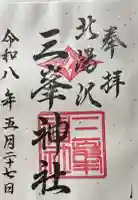 奉拝
北湯沢
三峯神社
令和八年五月二十七日